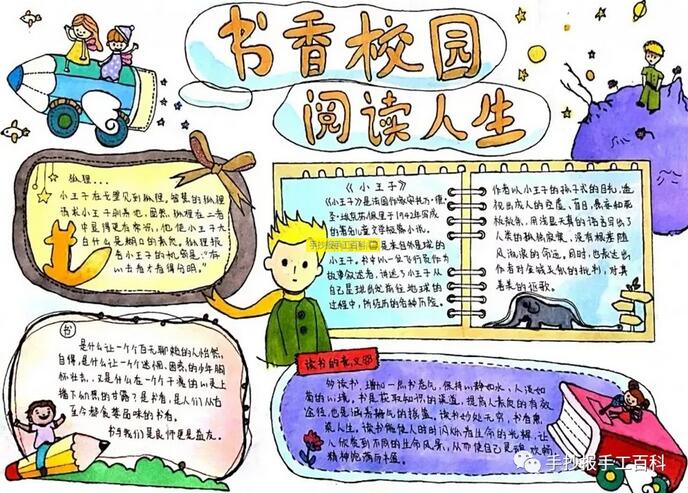 书香校园
阅读人生
狐狸...
小王子在老里见到狐狸,智慧的狐狸
请求小王子驯养他。虽然,狐狸在二者
中显得更有常识,他使小王子大
白什么是糊口的素质。狐狸报
告小王子的机密是:“有
以古者才看得分明。”
《小王子》
《小王子》是法国作家安托万·德·
圣·埃克苏佩里于1942年写成
的著名儿童文学短篇小说。
是来自外星球的
小王子。书中以一位飞行员作为
故事叙述者,讲述了小王子从
自己星球出发前往地球的
过程中,所经历的各种历险。
作者以小王子的孩子式的目光,透
视出成人的空虚、盲目,愚妄和死
板教条,用浅显天真的语言写出了
人类的孤独寂寞、没有根基随
风流浪的命运。同时,也表达出
作者对金钱关系的批判,对真
善美的讴歌。
书
是什么让一个个百无聊赖的人怡然
自得,是什么让一个个迷惘、困惑的少年胸
怀壮志,又是什么在一个个干涸的心灵上
播下幻想的甘露?是书卷,是人们从古
至今都贪婪品味的书卷。
书与我们是良师更是益友。
读书的意义
多读书,增加一些书卷气,保持心静如水,人淡如
菊的心境。书是获取知识的渠道,提高人素质的有效
途径,也是涵养静气的摇篮。读书妙处无穷,书香熏
爽人生。读书能使人的时间烁着生命的光辉,让
人欣赏到不同的生命风景,从而使自己灵魂欢畅,
精神饱满与丰盈。
手抄报手工百科
手抄报手工百科